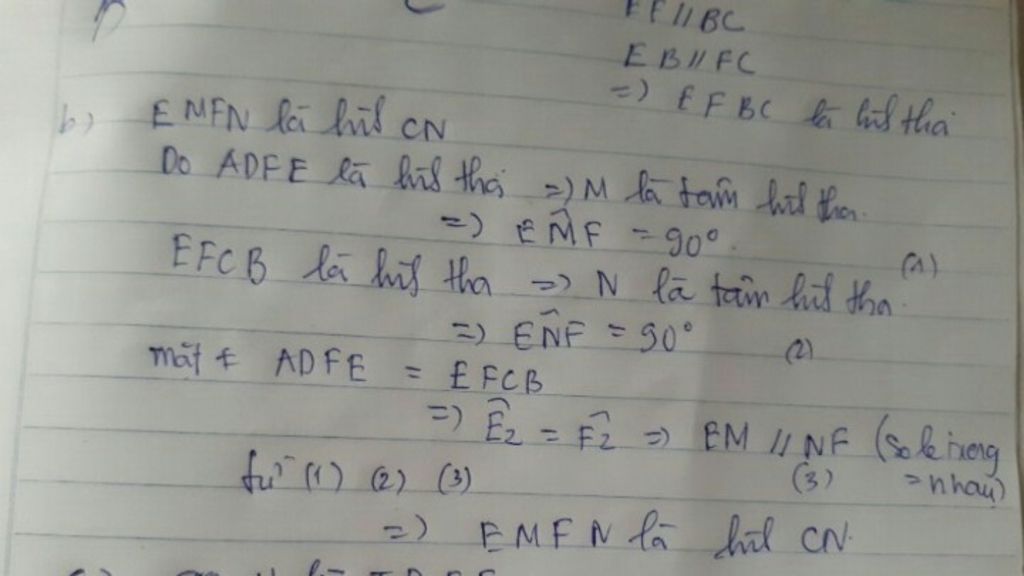 EF // BC
EB // FC
=) EFBC là hình thoi
b) EMFN là hình CN
Do ADFE là hình thoi =) M là tâm hình thoi.
=) EM̂F = 90°. (1)
EFCB là hình thoi =) N là tâm hình thoi.
=) EN̂F = 90° (2)
mặt ≠ ADFE = EFCB
=) Ê2 = F̂2 =) EM // NF (so le trong
= nhau)
(3)
từ (1) (2) (3)
=) EMFN là hình CN.